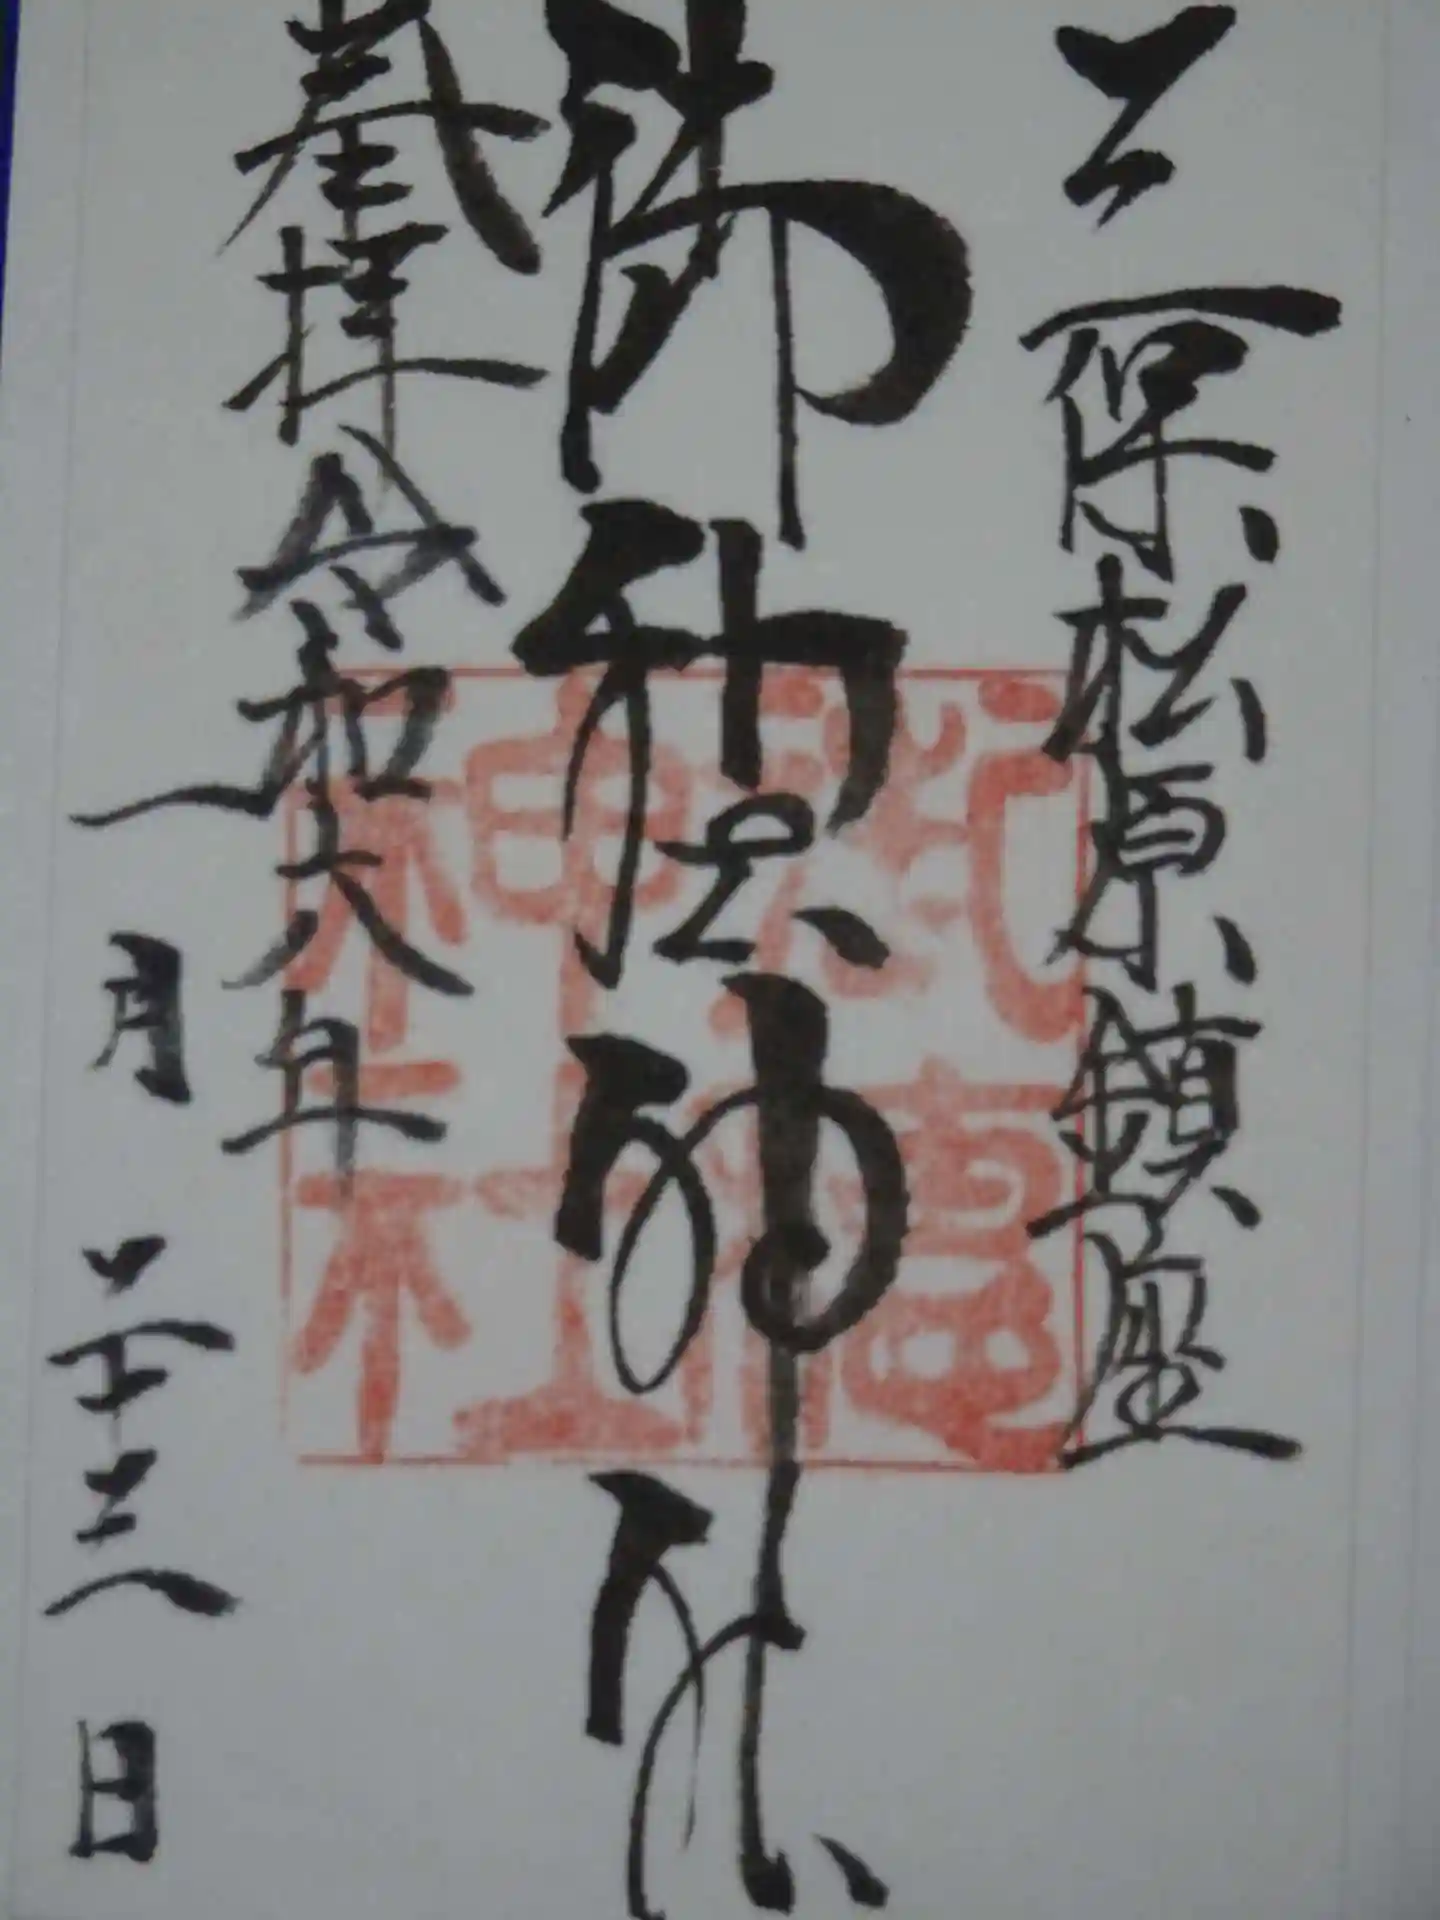 三保松原鎮座
御穂神社
奉拝 令和六年
一月二十三日
御穗神社